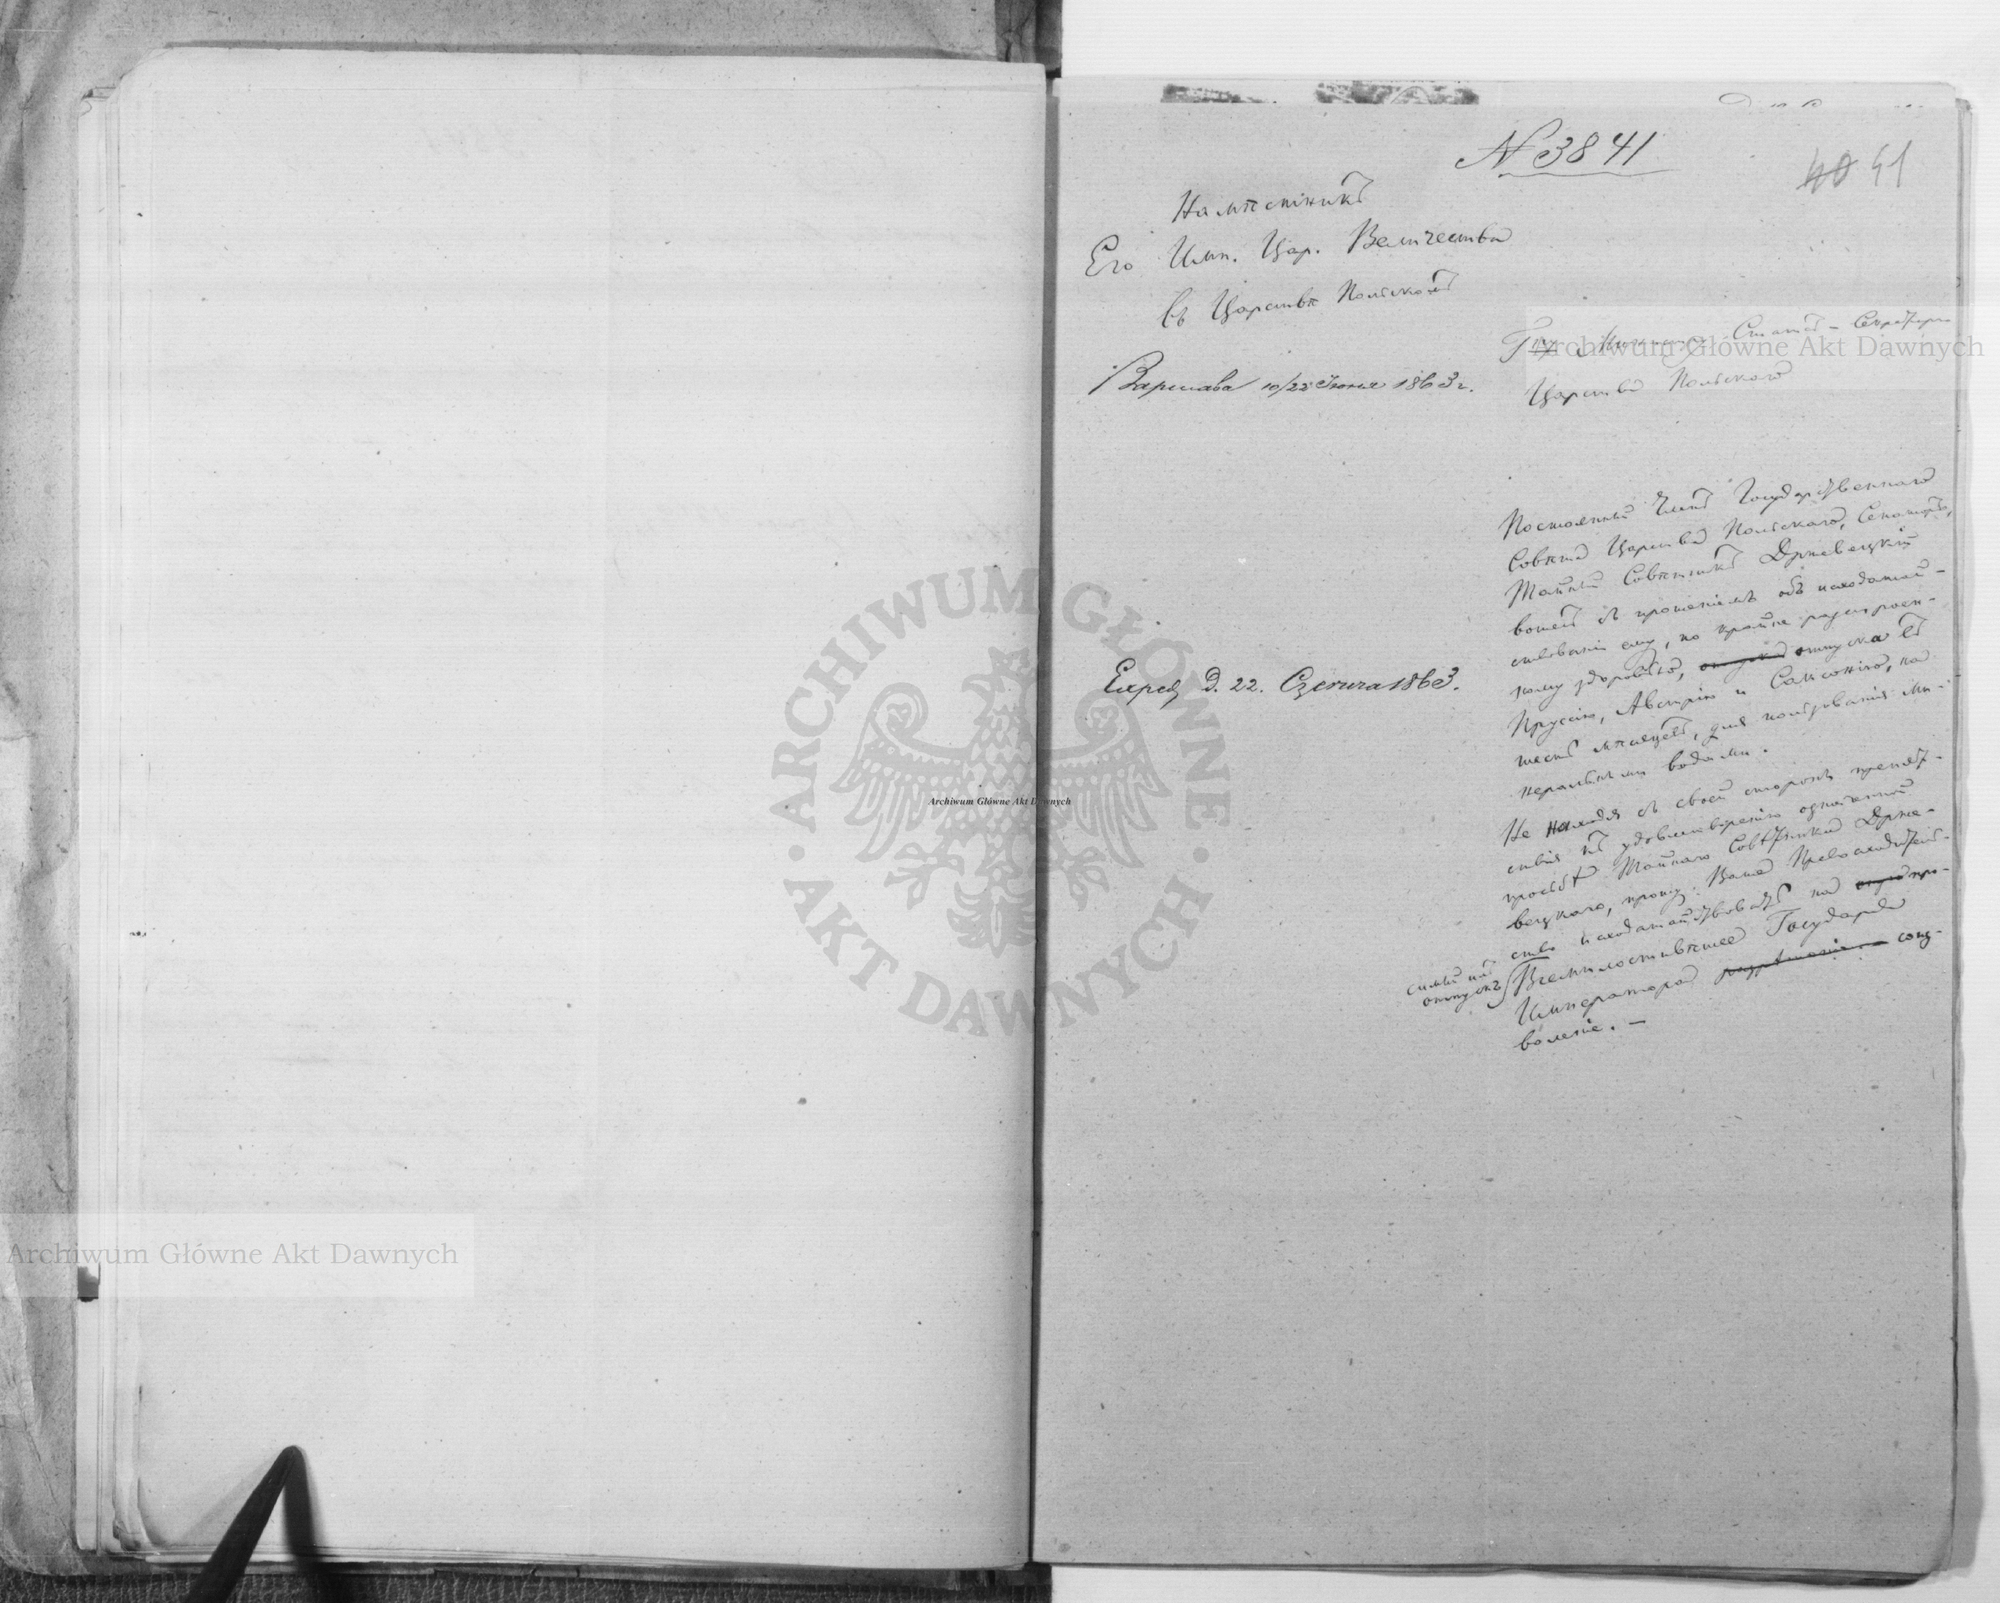 N 3841
40 41
Намѣстникъ
Его Имп. Цар. Величества
въ Царствѣ Польскомъ
Варшава 10/22 Іюня 1863 г.
Гну Министру Статсъ-Секретарю
Царства Польскаго
Exped. d. 22. Czerwca 1863.
Постоянный Членъ Государственнаго
Совѣта Царства Польскаго, Сенаторъ,
Тайный Совѣтникъ Држевецкій
вошелъ съ прошеніемъ объ исходатай-
ствованіи ему, по крайне разстроен-
ному здоровью, отпуска въ
Пруссію, Австрію и Саксонію, на
шесть мѣсяцевъ, для пользованія ми-
неральными водами.
Не находя съ своей стороны препят-
ствія къ удовлетворенію означенной
просьбы Тайнаго Совѣтника Држе-
вецкаго, прошу Ваше Превосходитель-
ство исходатайствовать на про-
симый имъ отпускъ
Всемилостивѣйшее Государя
Императора соиз-
воленіе. —
Archiwum Główne Akt Dawnych
ARCHIWUM GŁÓWNE · AKT DAWNYCH ·
Archiwum Główne Akt Dawnych
Archiwum Główne Akt Dawnych